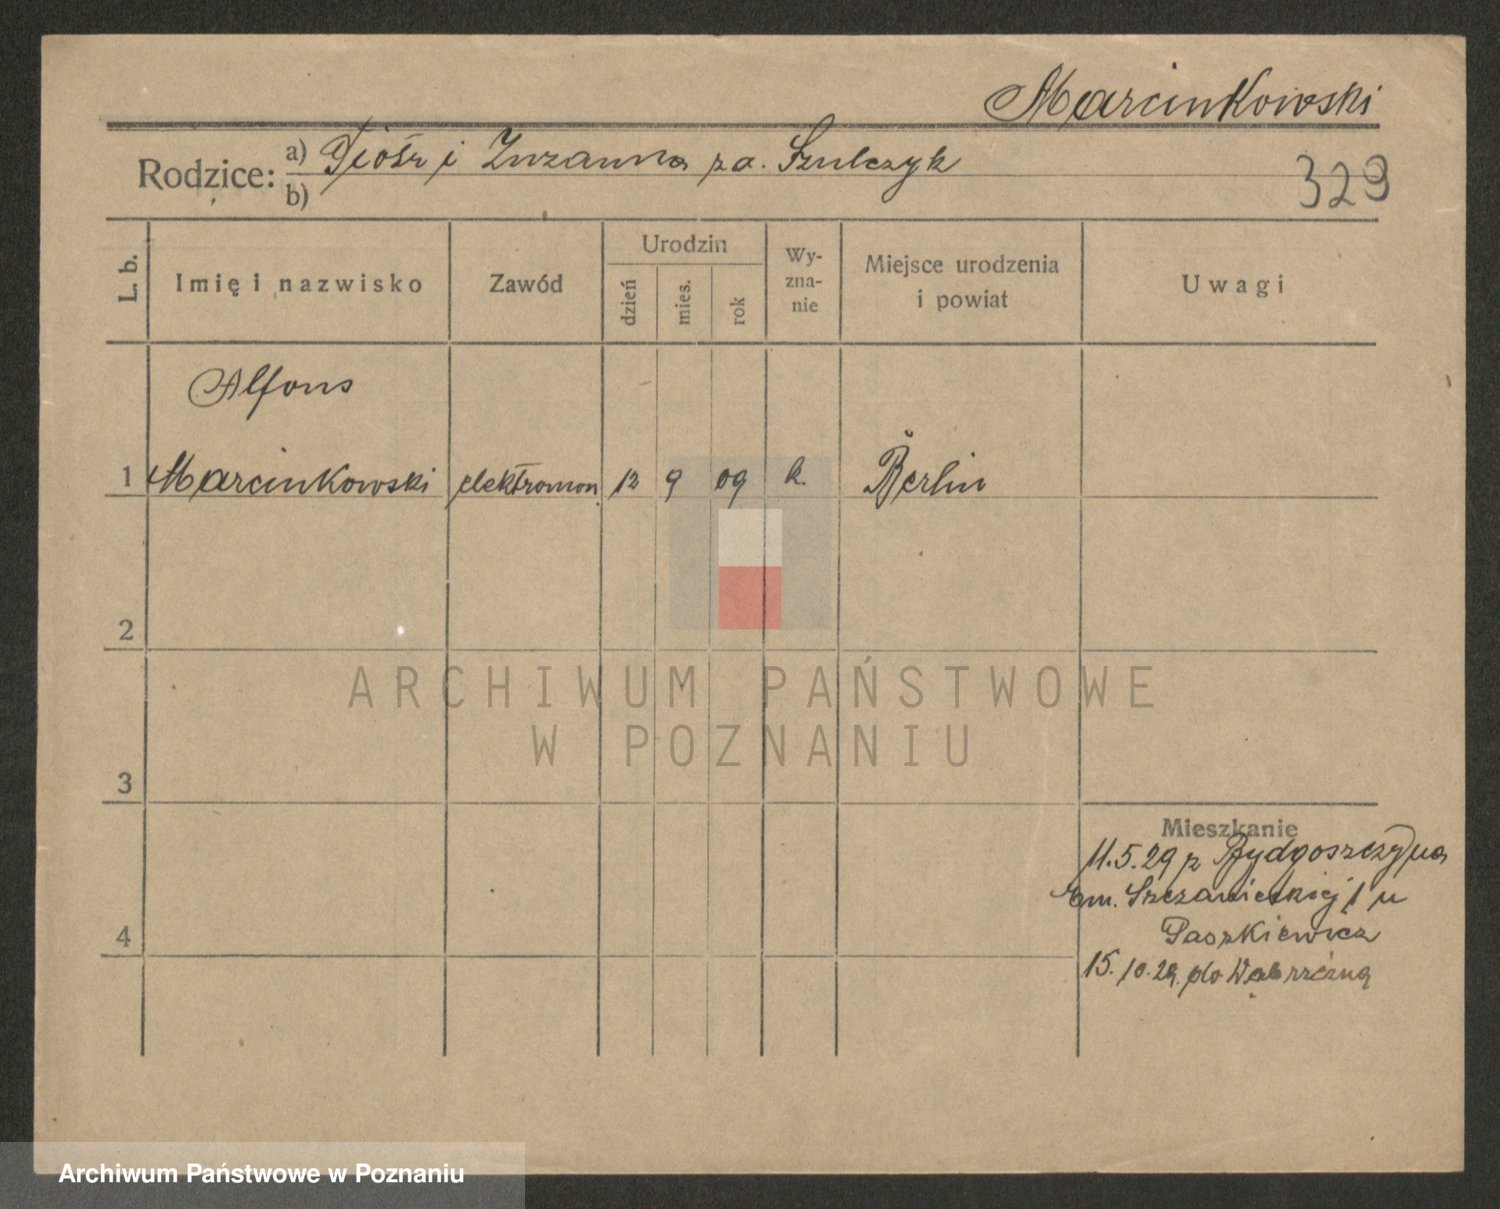 Marcinkowski
Rodzice: a) Piotr i Zuzanna za. Szulczyk
b)
329
L. b. Imię i nazwisko Zawód Urodzin dzień mies. rok Wy-zna-nie Miejsce urodzenia i powiat Uwagi
Alfons
1 Marcinkowski elektromon. 12 9 09 k. Berlin
2
3
4
Mieszkanie
11.5.29 z Bydgoszczy na
Em. Szczanieckiej 1 u
Paszkiewicz
15.10.29. do Wąbrzeźna
ARCHIWUM PAŃSTWOWE
W POZNANIU
Archiwum Państwowe w Poznaniu